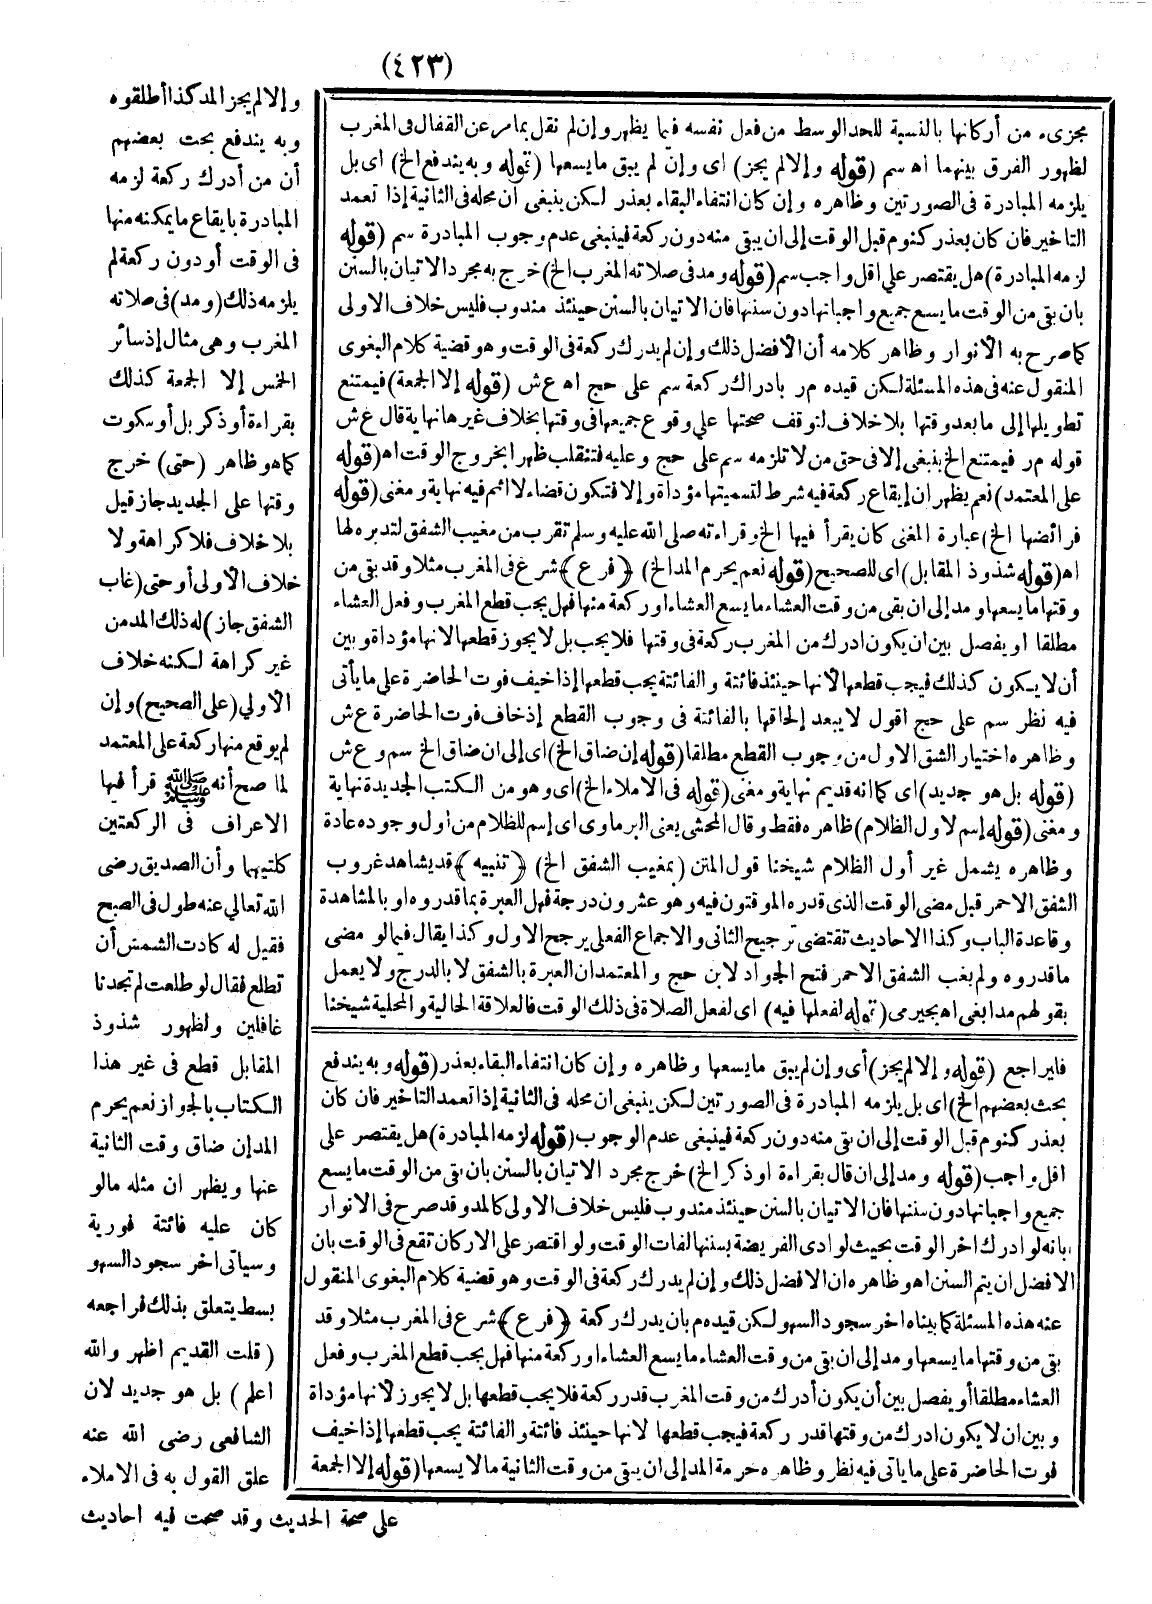 (٤٢٣)
مجزىء من أركانها بالنسبة للحد الوسط من فعل نفسه فيما يظهر وإن لم نقل بما مر عن القفال فى المغرب
لظهور الفرق بينهما اه سم (قوله وإلا لم يجز) اى وإن لم يبق ما يسعها (قوله وبه يندفع الخ) اى بل
يلزمه المبادرة فى الصورتين وظاهره وإن كان انتفاء البقاء بعذر لكن ينبغى ان محله فى الثانية إذا تعمد
التاخير فان كان بعذر كنوم قبل الوقت إلى ان يبقى منه دون ركعة فينبغى عدم وجوب المبادرة سم (قوله
لزمه المبادرة) هل يقتصر على اقل واجب سم (قوله ومد فى صلاته المغرب الخ) خرج به مجرد الاتيان بالسنن
بان بقى من الوقت ما يسع جميع واجباتها دون سننها فان الاتيان بالسنن حينئذ مندوب فليس خلاف الاولى
كما صرح به الانوار وظاهر كلامه أن الأفضل ذلك وإن لم يدرك ركعة فى الوقت وهو قضية كلام البغوى
المنقول عنه فى هذه المسئلة لكن قيده م ر بادراك ركعة سم على حج اه ع ش (قوله إلا الجمعة) فيمتنع
تطويلها إلى ما بعد وقتها بلا خلاف لتوقف صحتها على وقوع جميعها فى وقتها بخلاف غيرها نهاية قال ع ش
قوله م ر فيمتنع الخ ينبغى إلا فى حق من لا تلزمه سم على حج وعليه فتنقلب ظهرا بخروج الوقت اه (قوله
على المعتمد) نعم يظهر ان إيقاع ركعة فيه شرط لتسميتها مؤداة وإلا فتكون قضاء لا اثم فيه نهاية ومغنى (قوله
فرائضها الخ) عبارة المغنى كان يقرأ فيها الخ وقراءته صلى الله عليه وسلم تقرب من مغيب الشفق لتدبره لها
اه (قوله شذوذ المقابل) اى للصحيح (قوله نعم يحرم المد الخ) ﴿ فرع ﴾ شرع فى المغرب مثلا وقد بقى من
وقتها ما يسعها ومد إلى ان بقى من وقت العشاء ما يسع العشاء او ركعة منها فهل يجب قطع المغرب وفعل العشاء
مطلقا او يفصل بين ان يكون ادرك من المغرب ركعة فى وقتها فلا يجب بل لا يجوز قطعها لانها مؤداة وبين
أن لا يكون كذلك فيجب قطعها لأنها حينئذ فائتة والفائتة يجب قطعها إذا خيف فوت الحاضرة على ما يأتى
فيه نظر سم على حج اقول لا يبعد إلحاقها بالفائتة فى وجوب القطع إذ خاف فوت الحاضرة ع ش
وظاهره اختيار الشق الاول من وجوب القطع مطلقا (قوله إن ضاق الخ) اى إلى ان ضاق الخ سم وع ش
(قوله بل هو جديد) اى كما انه قديم نهاية ومغنى (قوله فى الاملاء الخ) اى وهو من الكتب الجديدة نهاية
ومغنى (قوله إسم لاول الظلام) ظاهره فقط وقال المحشى يعنى البرماوى اى إسم للظلام من اول وجوده عادة
وظاهره يشمل غير أول الظلام شيخنا قول المتن (بمغيب الشفق الخ) ﴿ تنبيه ﴾ قد يشاهد غروب
الشفق الاحمر قبل مضى الوقت الذى قدره الموقتون فيه وهو عشرون درجة فهل العبرة بما قدروه او بالمشاهدة
وقاعدة الباب وكذا الاحاديث تقتضى ترجيح الثانى والاجماع الفعلى يرجح الاول وكذا يقال فيما لو مضى
ما قدروه ولم يغب الشفق الاحمر فتح الجواد لابن حج والمعتمد ان العبرة بالشفق لا بالدرج ولا يعمل
بقولهم مدابغى اه بجيرمى (قوله لفعلها فيه) اى لفعل الصلاة فى ذلك الوقت فالعلاقة الحالية والمحلية شيخنا
فليراجع (قوله وإلا لم يجز) أى وإن لم يبق ما يسعها وظاهره وإن كان انتفاء البقاء بعذر (قوله وبه يندفع
بحث بعضهم الخ) اى بل يلزمه المبادرة فى الصورتين لكن ينبغى ان محله فى الثانية إذا تعمد التاخير فان كان
بعذر كنوم قبل الوقت إلى ان بقى منه دون ركعة فينبغى عدم الوجوب (قوله لزمه المبادرة) هل يقتصر على
اقل واجب (قوله ومد إلى ان قال بقراءة او ذكر الخ) خرج مجرد الاتيان بالسنن بان بقى من الوقت ما يسع
جميع واجباتها دون سننها فان الاتيان بالسنن حينئذ مندوب فليس خلاف الاولى كالمد وقد صرح فى الانوار
بانه لو ادرك اخر الوقت بحيث لو ادى الفريضة بسننها لفات الوقت ولو اقتصر على الاركان تقع فى الوقت بان
الافضل ان يتم السنن اه وظاهره ان الافضل ذلك وإن لم يدرك ركعة فى الوقت وهو قضية كلام البغوى المنقول
عنه هذه المسئلة كما بيناه اخر سجود السهو لكن قيده م بان يدرك ركعة ﴿ فرع ﴾ شرع فى المغرب مثلا وقد
بقى من وقتها ما يسعها ومد إلى ان بقى من وقت العشاء ما يسع العشاء او ركعة منها فهل يجب قطع المغرب وفعل
العشاء مطلقا أو يفصل بين أن يكون أدرك من وقت المغرب قدر ركعة فلا يجب قطعها بل لا يجوز لأنها مؤداة
وبين ان لا يكون ادرك من وقتها قدر ركعة فيجب قطعها لانها حينئذ فائتة والفائتة يجب قطعها إذا خيف
فوت الحاضرة على ما ياتى فيه نظر وظاهره حرمة المد إلى ان يبقى من وقت الثانية ما لا يسعها (قوله إلا الجمعة
وإلا لم يجز المد كذا أطلقوه
وبه يندفع بحث بعضهم
أن من أدرك ركعة لزمه
المبادرة بايقاع ما يمكنه منها
فى الوقت أو دون ركعة لم
يلزمه ذلك (ومد) فى صلاته
المغرب وهى مثال إذ سائر
الخمس إلا الجمعة كذلك
بقراءة أو ذكر بل أو سكوت
كما هو ظاهر (حتى) خرج
وقتها على الجديد جاز قيل
بلا خلاف فلا كراهة ولا
خلاف الأولى أو حتى (غاب
الشفق جاز) له ذلك المد من
غير كراهة لكنه خلاف
الأولى (على الصحيح) وإن
لم يوقع منها ركعة على المعتمد
لما صح أنه ﷺ قرأ فيها
الاعراف فى الركعتين
كلتيهما وأن الصديق رضى
الله تعالى عنه طول فى الصبح
فقيل له كادت الشمس أن
تطلع فقال لو طلعت لم تجدنا
غافلين ولظهور شذوذ
المقابل قطع فى غير هذا
الكتاب بالجواز نعم يحرم
المد إن ضاق وقت الثانية
عنها ويظهر ان مثله ما لو
كان عليه فائتة فورية
وسياتى اخر سجود السهو
بسط يتعلق بذلك فراجعه
(قلت القديم اظهر والله
اعلم) بل هو جديد لان
الشافعى رضى الله عنه
علق القول به فى الاملاء
على صحة الحديث وقد صحت فيه احاديث